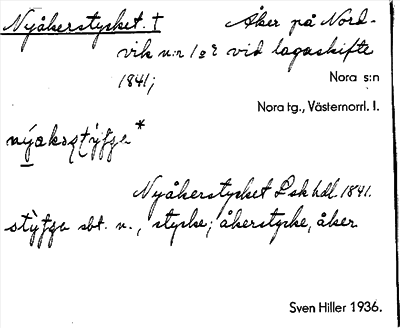 Nyåkerstycket. † Åker på Nord-
vik n:r 1 o 2 vid lagaskifte
1841; Nora s:n
Nora tg., Västernorrl. l.
Nyåkerstycket Lsk hdl. 1841.
sbt. n., stycke; åkerstycke, åker
Sven Hiller 1936.